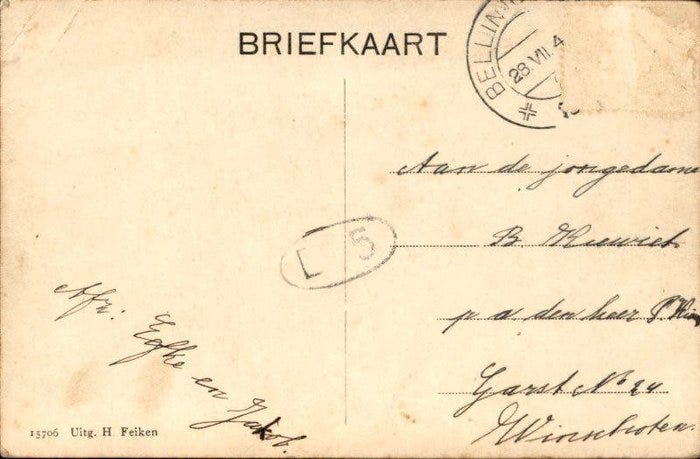 BRIEFKAART
BELLIN
28 VII. 4
Aan de jongedame
B. Kiewiet
p a den heer P.
Garst No 24
Winschoten.
L 5
Afz: Eefke en
Jakob.
15706 Uitg. H. Feiken